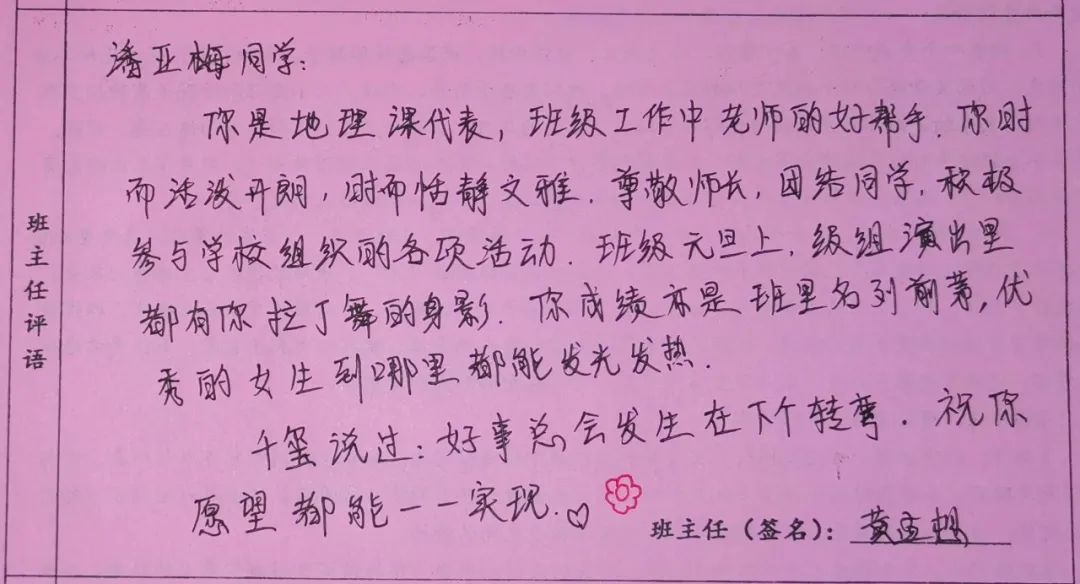 班主任评语
潘亚梅同学:
你是地理课代表,班级工作中老师的好帮手.你时
而活泼开朗,时而恬静文雅.尊敬师长,团结同学.积极
参与学校组织的各项活动.班级元旦上,级组演出里
都有你拉丁舞的身影.你成绩亦是班里名列前茅,优
秀的女生到哪里都能发光发热.
千玺说过:好事总会发生在下个转弯.祝你
愿望都能一一实现.
班主任(签名): 黄